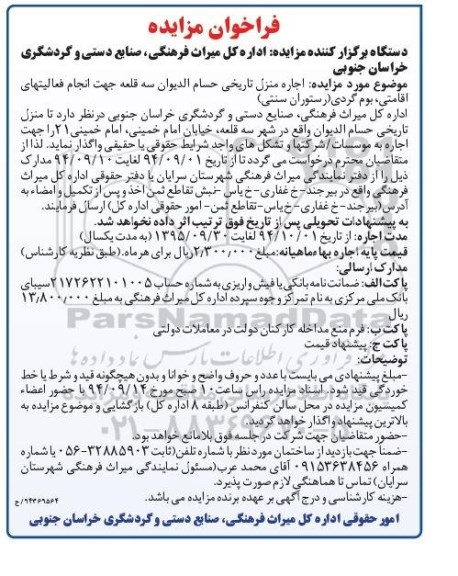 فراخوان مزایده
دستگاه برگزار کننده مزایده: اداره کل میراث فرهنگی، صنایع دستی و گردشگری
خراسان جنوبی
موضوع مورد مزایده: اجاره منزل تاریخی حسام الدیوان سه قلعه جهت انجام فعالیتهای
اقامتی، بوم گردی(رستوران سنتی)
اداره کل میراث فرهنگی، صنایع دستی و گردشگری خراسان جنوبی درنظر دارد تا منزل
تاریخی حسام الدیوان واقع در شهر سه قلعه، خیابان امام خمینی، امام خمینی۲۱را جهت
اجاره به موسسات/شرکتها و تشکل های واجد شرایط حقوقی یا حقیقی واگذار نماید. لذا از
متقاضیان محترم درخواست می گردد تا از تاریخ ۹۴/۰۹/۰۱ لغایت ۹۴/۰۹/۱۰ مدارک
ذیل را از دفتر نمایندگی میراث فرهنگی شهرستان سرایان یا دفتر حقوقی اداره کل میراث
فرهنگی واقع در بیرجند-خ غفاری-خ یاس-نبش تقاطع ثمن اخذ و پس از تکمیل و امضاء به
آدرس(بیرجند-خ غفاری-خ یاس-تقاطع ثمن- امور حقوقی اداره کل) ارسال فرمایند.
به پیشنهادات تحویلی پس از تاریخ فوق ترتیب اثر داده نخواهد شد.
مدت اجاره: از تاریخ ۹۴/۱۰/۰۱ لغایت ۱۳۹۵/۰۹/۳۰ (به مدت یکسال)
قیمت پایه اجاره بهاء ماهیانه:مبلغ ۲٫۳۰۰٫۰۰۰ریال برای هرماه.(طبق نظریه کارشناس)
مدارک ارسالی:
پاکت الف: ضمانت نامه بانکی یا فیش واریزی به شماره حساب ۲۱۷۲۶۲۲۱۰۱۰۰۵سیبای
بانک ملی مرکزی به نام تمرکز وجوه سپرده اداره کل میراث فرهنگی به مبلغ ۱۳٫۸۰۰٫۰۰۰
ریال
پاکت ب: فرم منع مداخله کارکنان دولت در معاملات دولتی
پاکت ج: پیشنهاد قیمت
توضیحات:
-مبلغ پیشنهادی می بایست با عدد و حروف واضح و خوانا و بدون هیچگونه قید و شرط یا خط
خوردگی قید شود. اسناد مزایده راس ساعت ۱۰ صبح مورخ ۹۴/۰۹/۱۴ با حضور اعضاء
کمیسیون مزایده در محل سالن کنفرانس (طبقه ۸ اداره کل) بازگشایی و موضوع مزایده به
بالاترین پیشنهاد واگذار خواهد گردید.
-حضور متقاضیان جهت شرکت در جلسه فوق بلامانع خواهد بود.
-ضمنا جهت بازدید از ساختمان مورد نظر با شماره تلفن(ثابت ۳۲۸۸۵۹۰۳-۰۵۶ یا شماره
همراه ۰۹۱۵۳۶۳۸۴۵۶ آقای محمد عرب(مسئول نمایندگی میراث فرهنگی شهرستان
سرایان) تماس تا هماهنگی لازم صورت پذیرد.
-هزینه کارشناسی و درج آگهی بر عهده برنده مزایده می باشد.
۹۴۳۶۹۵۶۴/خ
امور حقوقی اداره کل میراث فرهنگی، صنایع دستی و گردشگری خراسان جنوبی
ParsNamadData